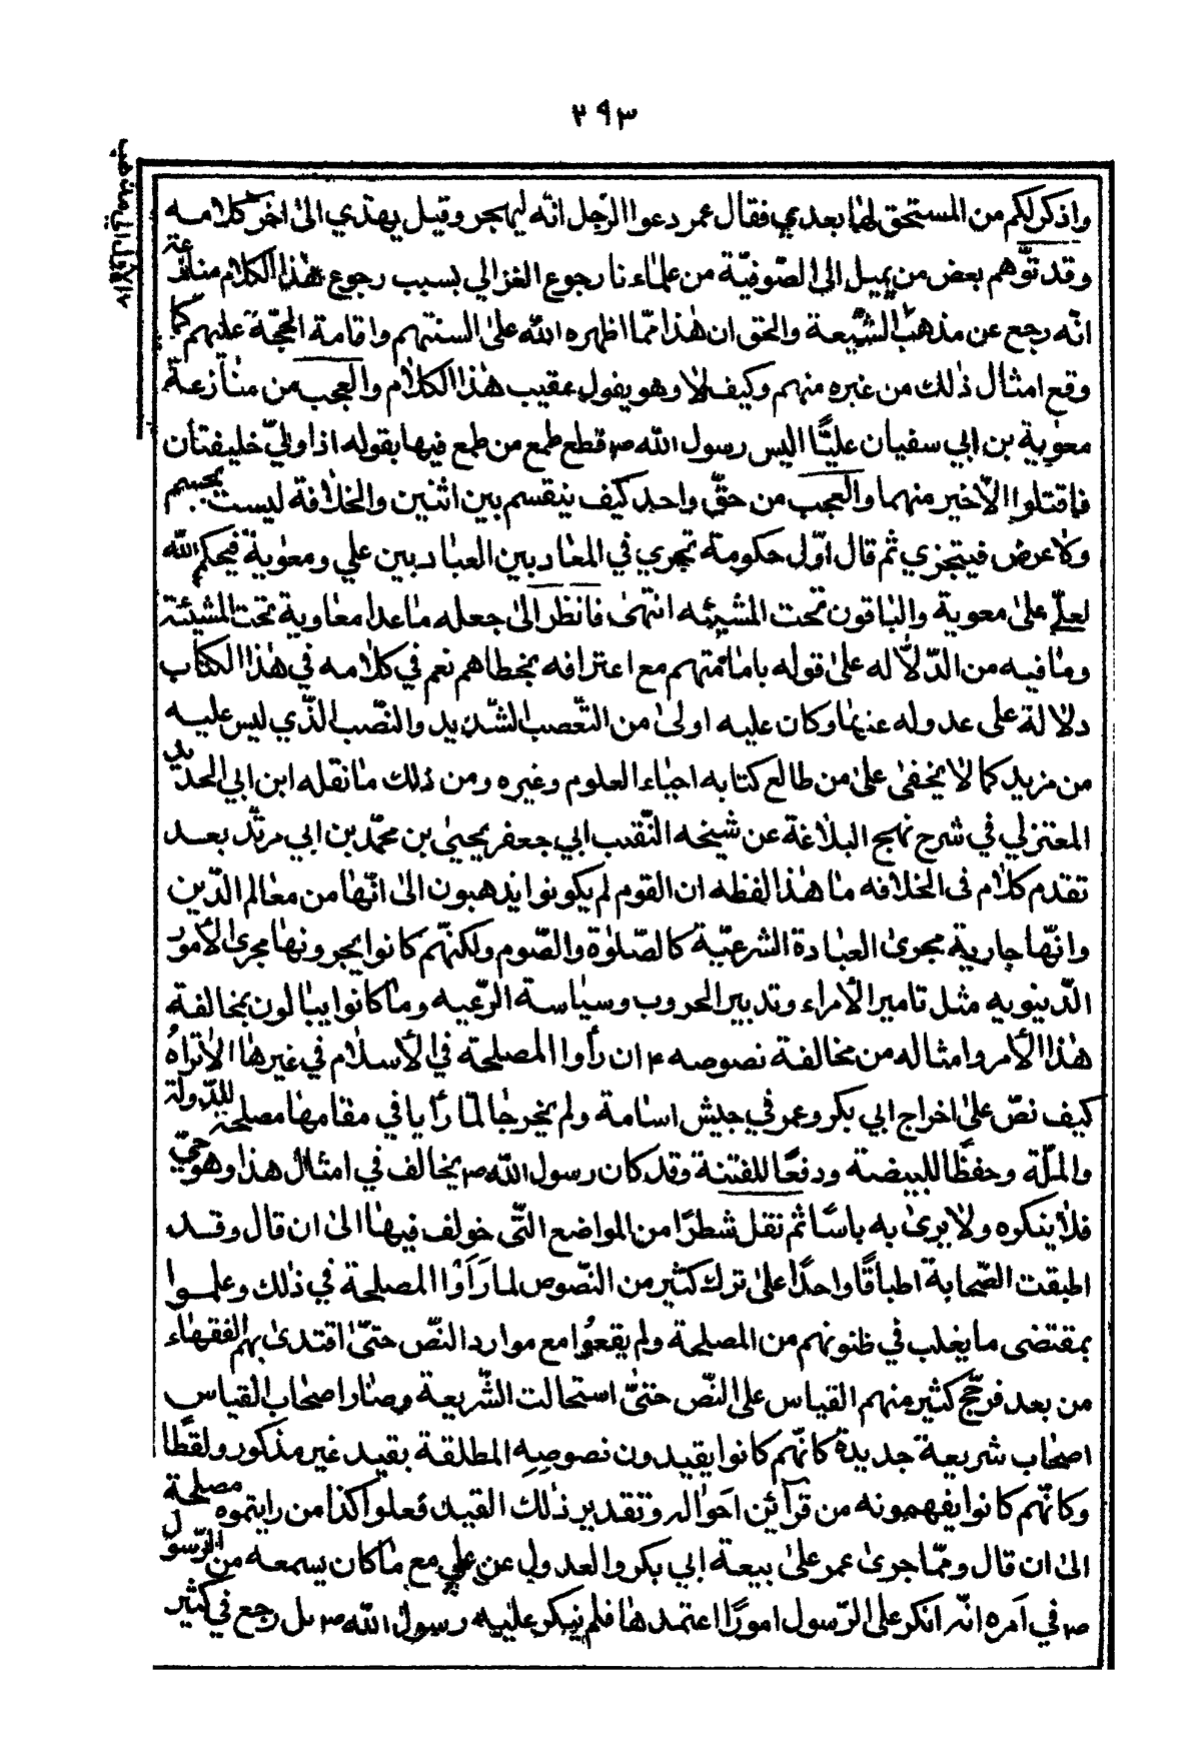 ٢٩٣
واذكر لكم من المستحق لها بعدي فقال عمر دعوا الرّجل انّه ليهجر وقيل يهذي الىٰ اخر كلامه
وقد توّهم بعض من يميل الى الصّوفيّة من علماءنا رجوع الغزالي بسبب رجوع هٰذا الكلام
انّه رجع عن مذهب الشّيعة والحق ان هٰذا ممّا اظهره اللّٰه علىٰ السنتهم واقامة الحجّة عليهم كما
وقع امثال ذٰلك من غيره منهم وكيف لا وهو يقول عقيب هٰذا الكلام والعجب من منازعة
معٰوية بن ابي سفيان عليّا اليس رسول اللّٰه ص قطع طمع من طمع فيها بقوله اذا ولّي خليفتان
فاقتلوا الأخير منهما والعجب من حقّ واحد كيف ينقسم بين اثنين والخلافة ليست بجسم
ولا عرض فيتجزي ثم قال اوّل حكومة تجري في المعاد بين العباد بين علي ومعٰوية فيحكم اللّٰه
لعليّ علىٰ معوية والباقون تحت المشيئه انتهىٰ فانظر الىٰ جعله ماعدا معاوية تحت المشيئة
وما فيه من الدّلاله علىٰ قوله بامامتهم مع اعترافه بخطاهم نعم في كلامه في هٰذا الكتاب
دلالة على عدوله عنها وكان عليه اولىٰ من التّعصب الشّديد والنّصب الّذي ليس عليه
من مزيد كما لا يخفىٰ علىٰ من طالع كتابه احياء العلوم وغيره ومن ذلك ما نقله ابن ابي الحديد
المعتزلي في شرح نهج البلاغة عن شيخه النّقيب ابي جعفر يحيىٰ بن محمّد بن ابي مرثد بعد
تقدم كلام فى الخلافه ما هٰذا لفظه ان القوم لم يكونوا يذهبون الىٰ انّها من معالم الدّين
وانّها جارية مجرىٰ العبادة الشرعيّة كالصّلوٰة والصّوم ولكنّهم كانوا يجرونها مجرىٰ الأمور
الدّينويه مثل تامير الأمراء وتدبير الحروب وسياسة الرّعيه وما كانوا يبالون بمخالفة
هٰذا الأمر وامثاله من مخالفة نصوصه ان رأوا المصلحة في الأسلام في غيرها الا تراه
كيف نصّ علىٰ اخراج ابي بكر وعمر في جيش اسامة ولم يخرجا لمّا رأيا في مقامها مصلحة للدّولة
والملّة وحفظًا للبيضة ودفعًا للفتنة وقد كان رسول اللّٰه ص يخالف في امثال هذا وهو حيّ
فلا ينكره ولا يرىٰ به باسًا ثم نقل شطرًا من المواضع الّتي خولف فيها الىٰ ان قال وقد
اطبقت الصّحابة اطباقًا واحدًا علىٰ ترك كثير من النّصوص لما رَاَوْا المصلحة في ذٰلك وعلموا
بمقتضى ما يغلب في ظنونهم من المصلحة ولم يقعوا مع موارد النّصّ حتىّٰ اقتدىٰ بهم الفقهاء
من بعد فرجّح كثير منهم القياس على النّص حتىّٰ استحالت الشّريعة وصار اصحاب القياس
اصحاب شريعة جديدة كانّهم كانوا يقيدون نصوصه المطلقة بقيد غير مذكور ولقطًا
وكانّهم كانوا يفهمونه من قرآئن احواله وتقدير ذٰلك القيد فعلوا كذا من رايتموه مصلحة
الىٰ ان قال وممّا جرىٰ عمر علىٰ بيعة ابي بكر والعدول عن علي مع ما كان يسمعه من الرّسول
ص في اَمره انّه انكر على الرّسول امورًا اعتمدها فلم ينكر عليه رسول اللّٰه ص بل رجع في كثير